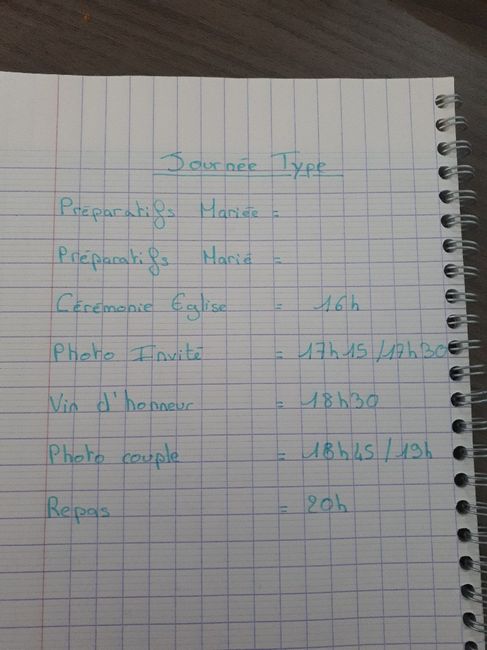 Journée Type
Préparatifs Mariée =
Préparatifs Marié =
Cérémonie Eglise = 16h
Photo Invité = 17h15/17h30
Vin d'honneur = 18h30
Photo couple = 18h45/19h
Repas = 20h